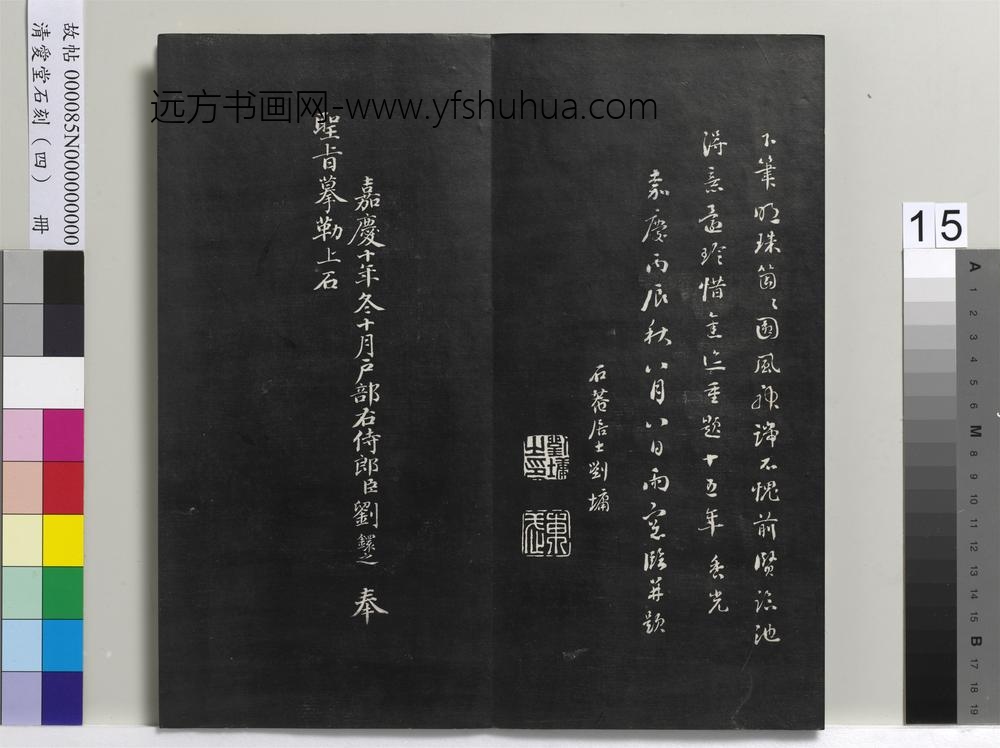 故帖 000085N000000000
清愛堂石刻（四） 冊
远方书画网-www.yfshuhua.com
15
下筆明珠箇々圓風神端不愧前賢臨池
得意還珍惜
重題十五年 香光
嘉慶丙辰秋八月八日雨窓臨并題
石菴居士劉墉
劉墉
之印
嘉慶十年冬十月戶部右侍郎臣劉鐶之 奉
聖旨摹勒上石
A 1 2 3 4 5 6 M 8 9 10 11 12 13 14 15 B 17 18 19